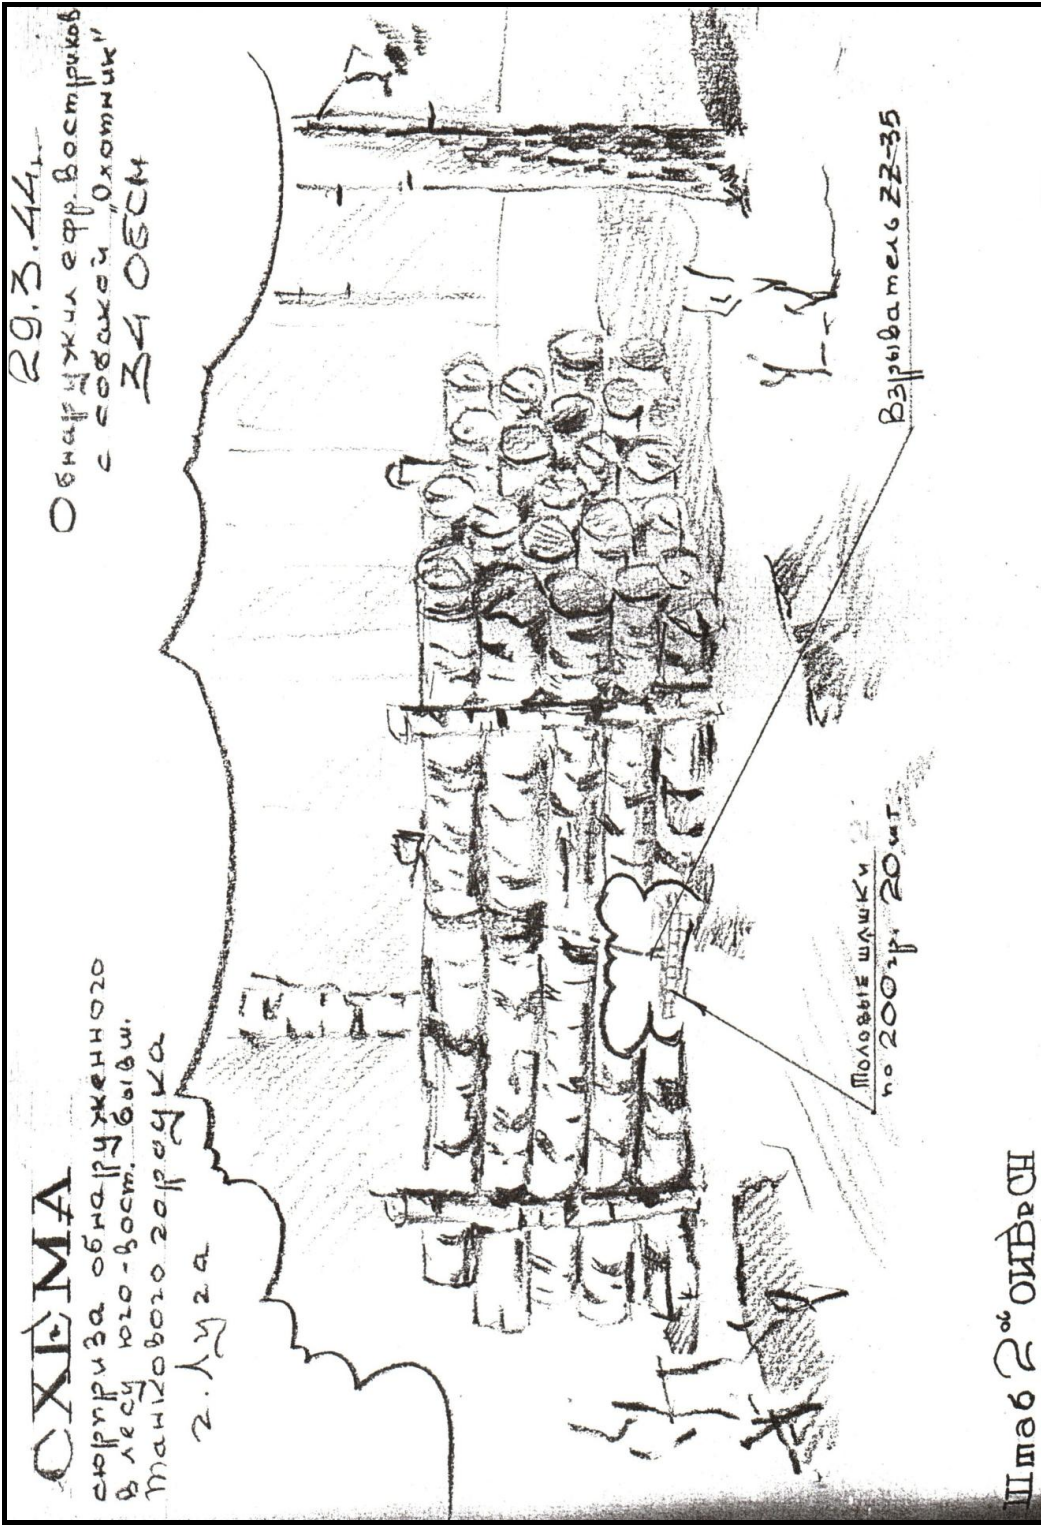 СХЕМА
сюрприза обнаруженного
в лесу юго-вост. бывш.
танкового городка
г. Луга
29.3.44г.
Обнаружил ефр. Востриков
с собакой "Охотник"
34 ОБСМ
Взрыватель ZZ-35
Толовые шашки
по 200гр. 20шт.
Штаб 2ой ОИБрСН